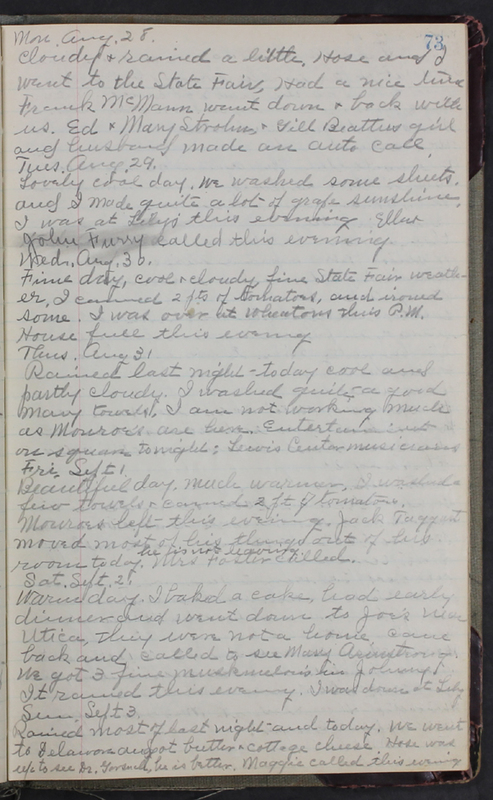 73
Mon. Aug. 28.
Cloudy & rained a little, Hose and I
went to the State Fair, Had a nice time
Frank McMann went down & back with
us. Ed & Mary Strohm, & Gill Beatties girl
and husband made an auto call.
Tues. Aug. 29.
Lovely cool day. We washed some sheets.
and I made quite a lot of grape sunshine.
I was at Lily's this evening Ellen
John Furry called this evening
Wed. Aug. 30.
Fine day, cool & cloudy, fine State Fair weath-
er, I canned 2 pts of tomatoes, and ironed
some. I was over at Wheatons this P.M.
House full this evening
Thurs. Aug 31
Rained last night - today cool and
partly cloudy. I washed quite a good
many towels, I am not working much
as Monroes are here. Entertainment
on square tonight: Lewis Center musicians
Fri. Sept. 1.
Beautiful day, much warmer. I washed a
few towels & canned 2 pt. of tomatoes.
Monroes left this evening. Jack Taggart
moved most of his things out of his
he is not leaving.
room today. Mrs Foster called.
Sat. Sept. 2.
Warm day. I baked a cake, had early
dinner and went down to Joe's near
Utica, they were not a home, came
back and called to see Mary Armstrong.
We got 3 fine muskmelons in Johnny!
It rained this evening. I was down at Lily
Sun. Sept 3.
Rained most of last night and today. We went
to Delaware and got butter & cottage cheese. Hose was
up to see Dr. he is better. Maggie called this evening